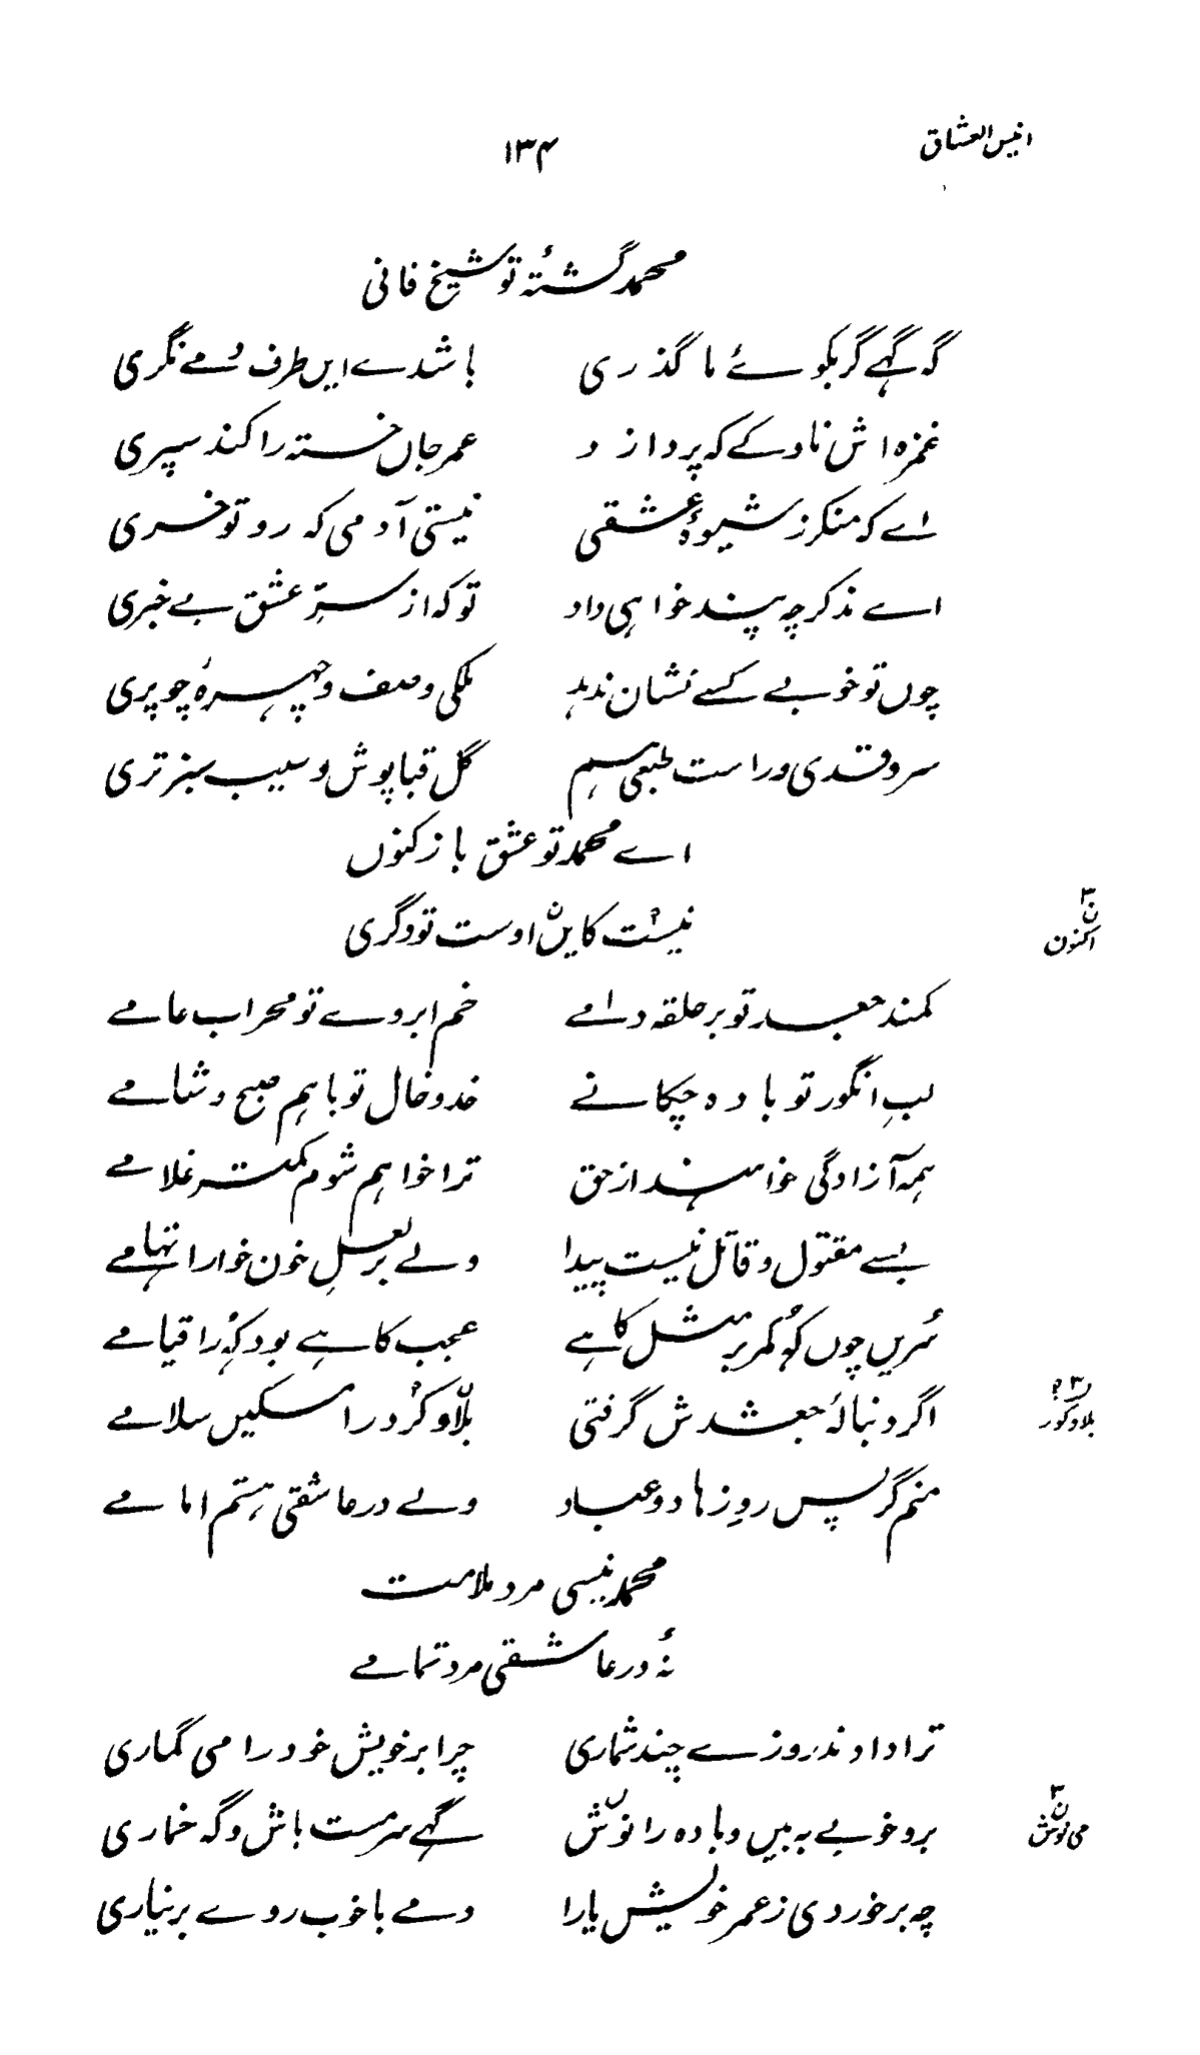 انیس العشاق
۱۳۴
محمد گشتۂ تو شیخ فانی
گہ گہے گر بکوئے ما گذری باشدے ایں طرف دمے نگری
غمزہ اش ناوکے کہ پردازد عمر جاں خستہ را کند سپری
اے کہ منکر ز شیوۂ عشقی نیستی آدمی کہ رو تو خری
اے مذکر چہ پند خواہی داد تو کہ از سرّ عشق بے خبری
چوں تو خوبے کسے نشان ندہد ملکی وصف و چہرہ چو پری
سرو قدی و راست طبعی ہم گل قبا پوش و سیب سبز تری
اے محمد تو عشق باز کنوں
نیست کایں اوست تو دگری
۳ ن
اکنون
کمند جعد تو بر حلقہ دامے خم ابروے تو محراب عامے
لبِ انگور تو بادہ چکانے خد و خال تو باہم صبح و شامے
ہمہ آزادگی خواہند از حق ترا خواہم شوم کمتر غلامے
بسے مقتول و قاتل نیست پیدا ولے بر لعلِ خون خوار اتہامے
سُریں چوں کُہ کمر بر مثل کاہے عجب کاہے بود کُہ را قیامے
اگر دنبالۂ جعدش گرفتی بلاو کرد در را مسکیں سلامے
۳ ن
بلاد کور
منم گر پس روِ زہاد و عباد ولے در عاشقی ہستم امامے
محمد نیسی مرد ملامت
نۂ در عاشقی مرد تمامے
ترا دادند روزے چند شماری چرا بر خویش خود را می گماری
برو خوبے بہ بیں و بادہ را نوش گہے سرمست باش و گہ خماری
۳ ن
می نوش
چہ برخوردی ز عمر خویش یارا دمے با خوب روے بر نیاری